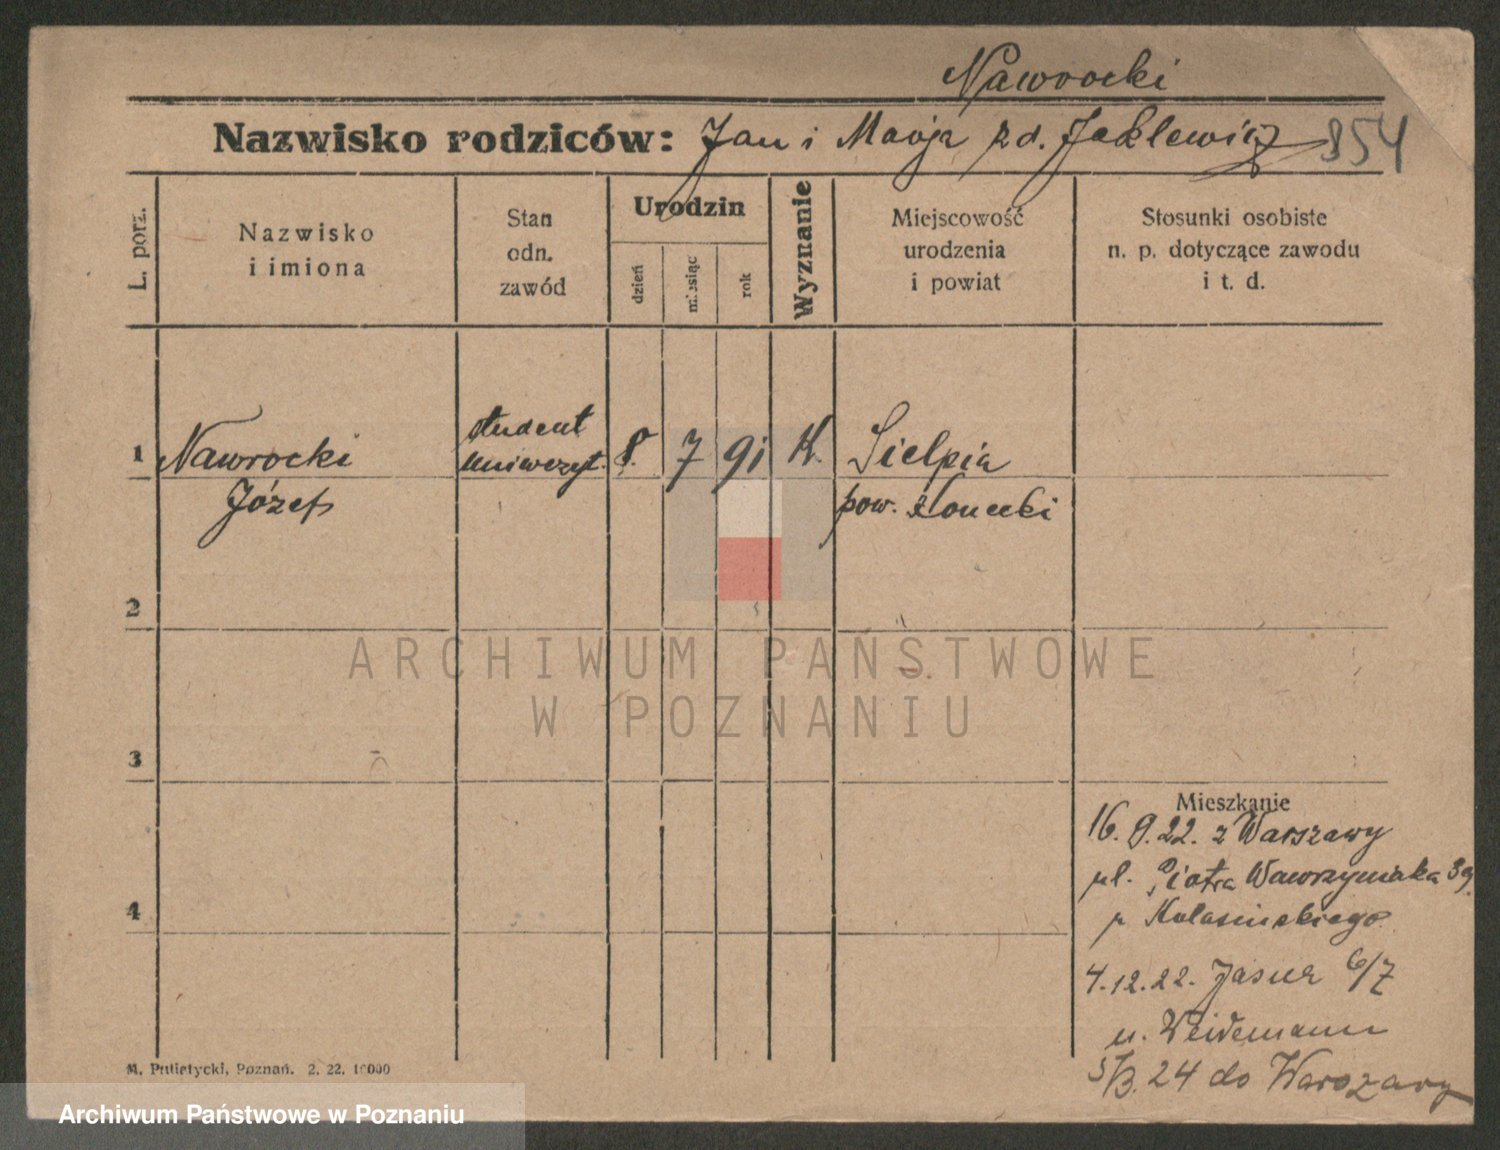 Nawrocki
Nazwisko rodziców: Jan i Marja zd. Jaklewicz 854
L. porz.
Nazwisko
i imiona
Stan
odn.
zawód
Urodzin
dzień
miesiąc
rok
Wyznanie
Miejscowość
urodzenia
i powiat
Stosunki osobiste
n. p. dotyczące zawodu
i t. d.
1 Nawrocki
Józef
student
uniwerzyt.
8. 7 91 K.
Sielpia
pow. Konecki
2
3
4
ARCHIWUM PAŃSTWOWE
W POZNANIU
Mieszkanie
16.9.22. z Warszawy
ul. Piotra Wawrzyniaka 39.
u Kolasińskiego
4.12.22. Jasna 6/7
u. Weidemann
5/3.24 do Warszawy
M. Putiatycki, Poznań. 2. 22. 10000
Archiwum Państwowe w Poznaniu